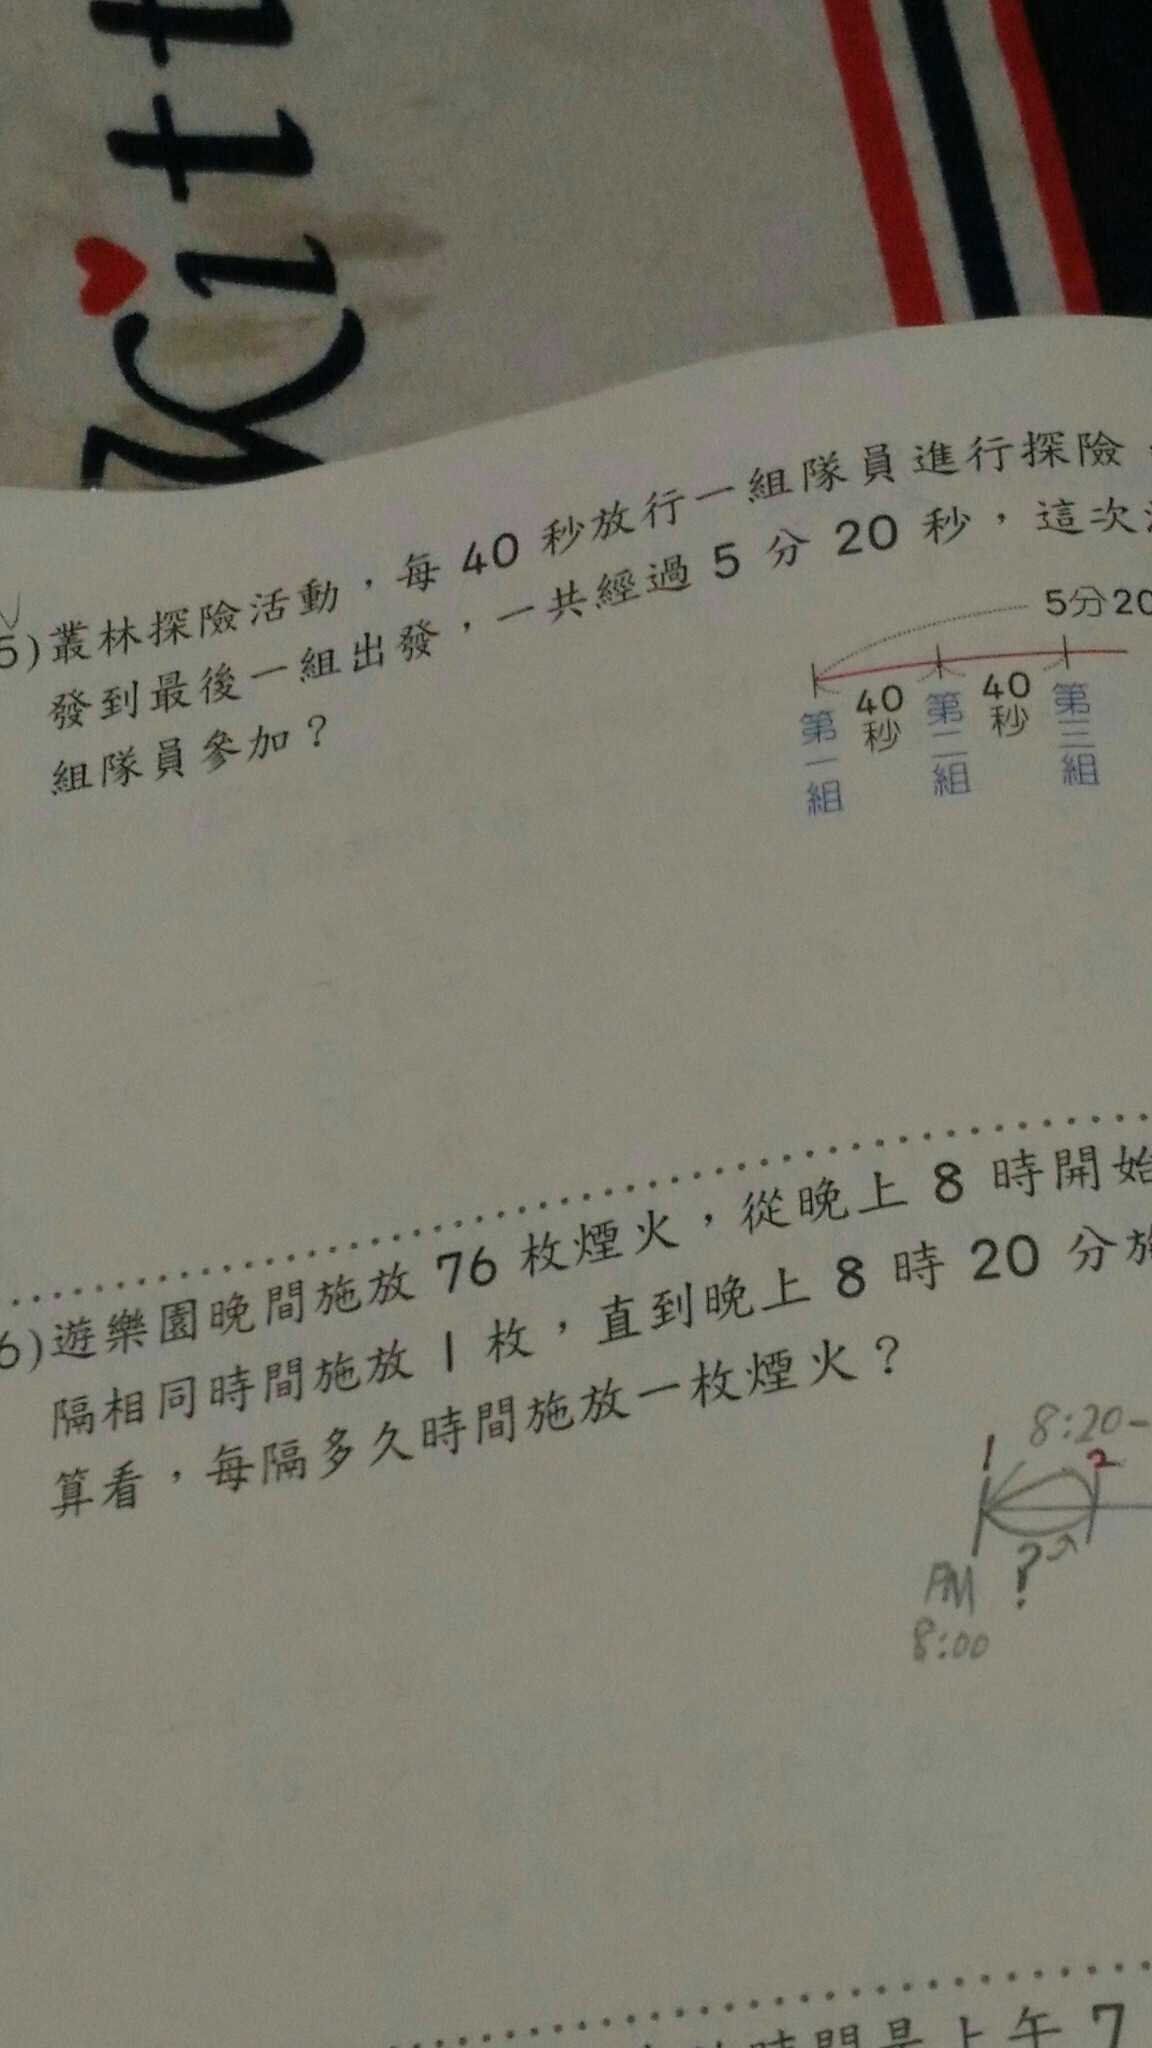 Kitt
5)叢林探險活動，每 40 秒放行一組隊員進行探險，
發到最後一組出發，一共經過 5 分 20 秒，這次
組隊員參加？
5分20
40秒
40秒
第一組
第二組
第三組
6)遊樂園晚間施放 76 枚煙火，從晚上 8 時開始
隔相同時間施放 1 枚，直到晚上 8 時 20 分施
算看，每隔多久時間施放一枚煙火？
8:20-
1 2
?
8:00
時間是上午 7